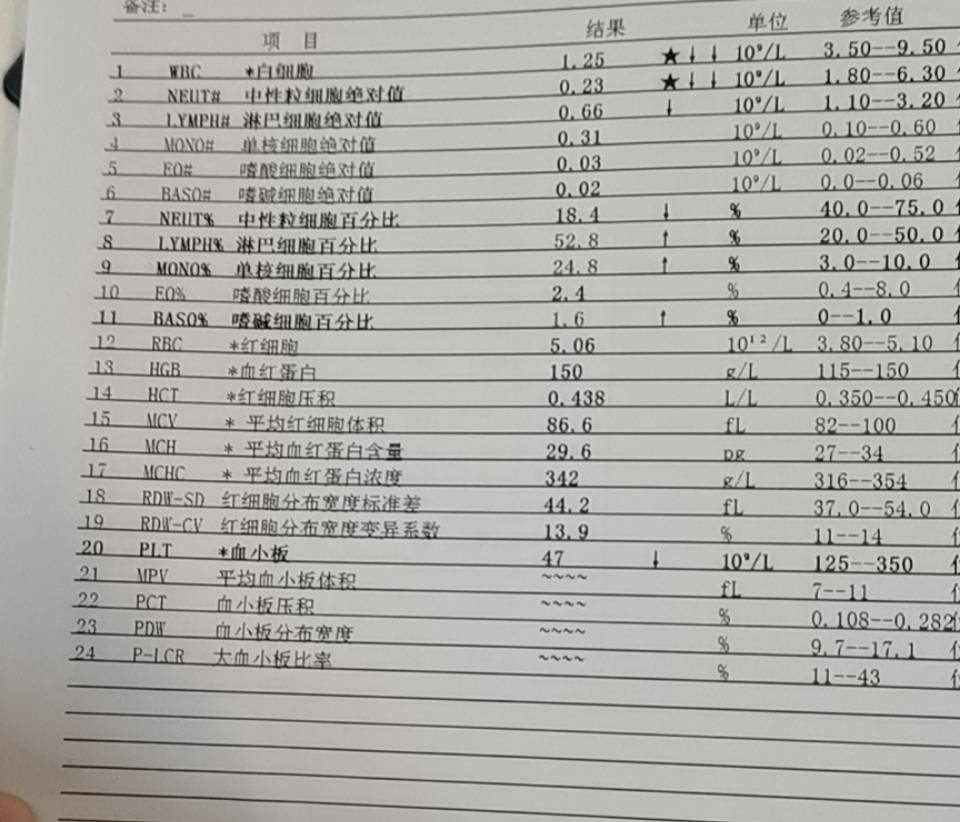 备注: _
项 目 结果 单位 参考值
1 WBC *白细胞 1.25 ★↓↓ 10⁹/L 3.50--9.50
2 NEUT# 中性粒细胞绝对值 0.23 ★↓↓ 10⁹/L 1.80--6.30
3 LYMPH# 淋巴细胞绝对值 0.66 ↓ 10⁹/L 1.10--3.20
4 MONO# 单核细胞绝对值 0.31 10⁹/L 0.10--0.60
5 EO# 嗜酸细胞绝对值 0.03 10⁹/L 0.02--0.52
6 BASO# 嗜碱细胞绝对值 0.02 10⁹/L 0.0--0.06
7 NEUT% 中性粒细胞百分比 18.4 ↓ % 40.0--75.0
8 LYMPH% 淋巴细胞百分比 52.8 ↑ % 20.0--50.0
9 MONO% 单核细胞百分比 24.8 ↑ % 3.0--10.0
10 EO% 嗜酸细胞百分比 2.4 % 0.4--8.0
11 BASO% 嗜碱细胞百分比 1.6 ↑ % 0--1.0
12 RBC *红细胞 5.06 10¹²/L 3.80--5.10
13 HGB *血红蛋白 150 g/L 115--150
14 HCT *红细胞压积 0.438 L/L 0.350--0.450
15 MCV * 平均红细胞体积 86.6 fL 82--100
16 MCH * 平均血红蛋白含量 29.6 pg 27--34
17 MCHC * 平均血红蛋白浓度 342 g/L 316--354
18 RDW-SD 红细胞分布宽度标准差 44.2 fL 37.0--54.0
19 RDW-CV 红细胞分布宽度变异系数 13.9 % 11--14
20 PLT *血小板 47 ↓ 10⁹/L 125--350
21 MPV 平均血小板体积 ~~~~ fL 7--11
22 PCT 血小板压积 ~~~~ % 0.108--0.282
23 PDW 血小板分布宽度 ~~~~ % 9.7--17.1
24 P-LCR 大血小板比率 ~~~~ % 11--43